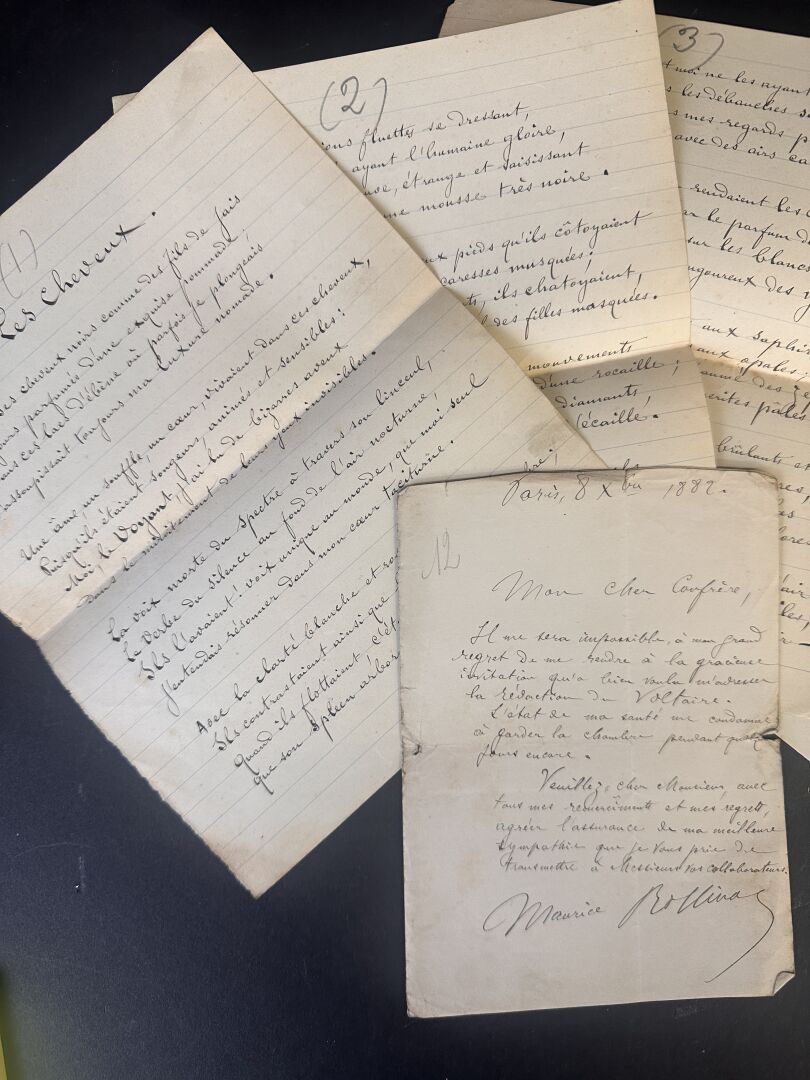 (1)
Les Cheveux.
ses cheveux noirs comme des fils de jais
parfumés d'une exquise pommade,
ces lacs d'ébène où parfois je plongeais
assoupissait toujours ma luxure nomade.
Une âme, un souffle, un cœur, vivaient dans ces cheveux,
Puisqu'ils étaient songeurs, animés, et sensibles:
Moi, le Voyant, j'ai lu de bizarres aveux
dans le miroitement de leurs yeux invisibles.
La voix morte du spectre à travers son linceul,
Le verbe du silence au fond de l'air nocturne,
Ils l'avaient: voix unique au monde, que moi seul
J'entendais résonner dans mon cœur taciturne.
Avec la clarté blanche et ro
Ils contrastaient ainsi que
Quand ils flottaient, c'ét
que son spleen arbor
(2)
ions fluettes se dressant,
ayant l'humaine gloire,
uve, étrange et saisissant
me mousse très noire.
ux pieds qu'ils côtoyaient
caresses musquées;
ts, ils chatoyaient,
des filles masquées.
mouvements
d'une rocaille;
diamants
écaille.
bre;
(3)
t moi ne les ayant
les débauches
mes regards p
avec des airs ca
rendaient les
le parfum d
sur les blancs
goureux des
aux saphi
aux opales;
des
erites pâles
brûlants et
res,
air
les,
Paris, 8 Xbre 1882.
12
Mon cher Confrère,
Il me sera impossible, à mon grand
regret de me rendre à la gracieuse
invitation qu'a bien voulu m'adresser
la rédaction du Voltaire.
L'état de ma santé me condamne
à garder la chambre pendant quelq
jours encore.
Veuillez, cher Monsieur, avec
tous mes remerciments et mes regrets,
agréer l'assurance de ma meilleure
sympathie que je vous prie de
transmettre à Messieurs vos collaborateurs.
Maurice Rollinat